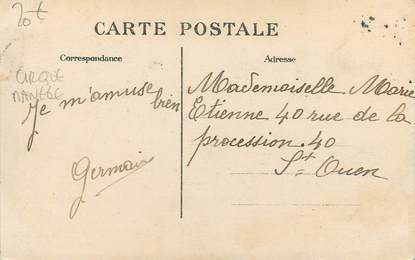 20€
CARTE POSTALE
Correspondance
Adresse
CIRQUE
MANEGE
Je m'amuse
bien
Germain
Mademoiselle Marie
Etienne 40 rue de la
procession. 40
St Ouen